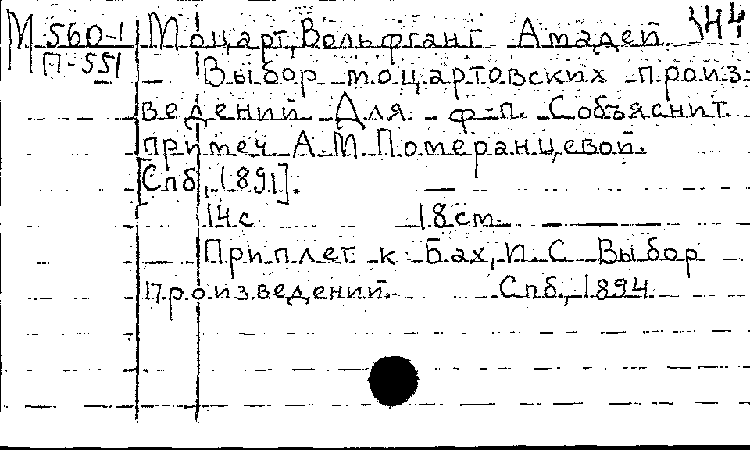 М 560-1 Моцарт, Вольфганг Амадей 344
П-551 Выбор моцартовских произ-
ведений Для ф-п. Собъяснит
примеч А.М.Померанцевой.
[Спб, 1891].
14с 18см.
Приплет к Бах, И.С Выбор
произведений. Спб., 1894